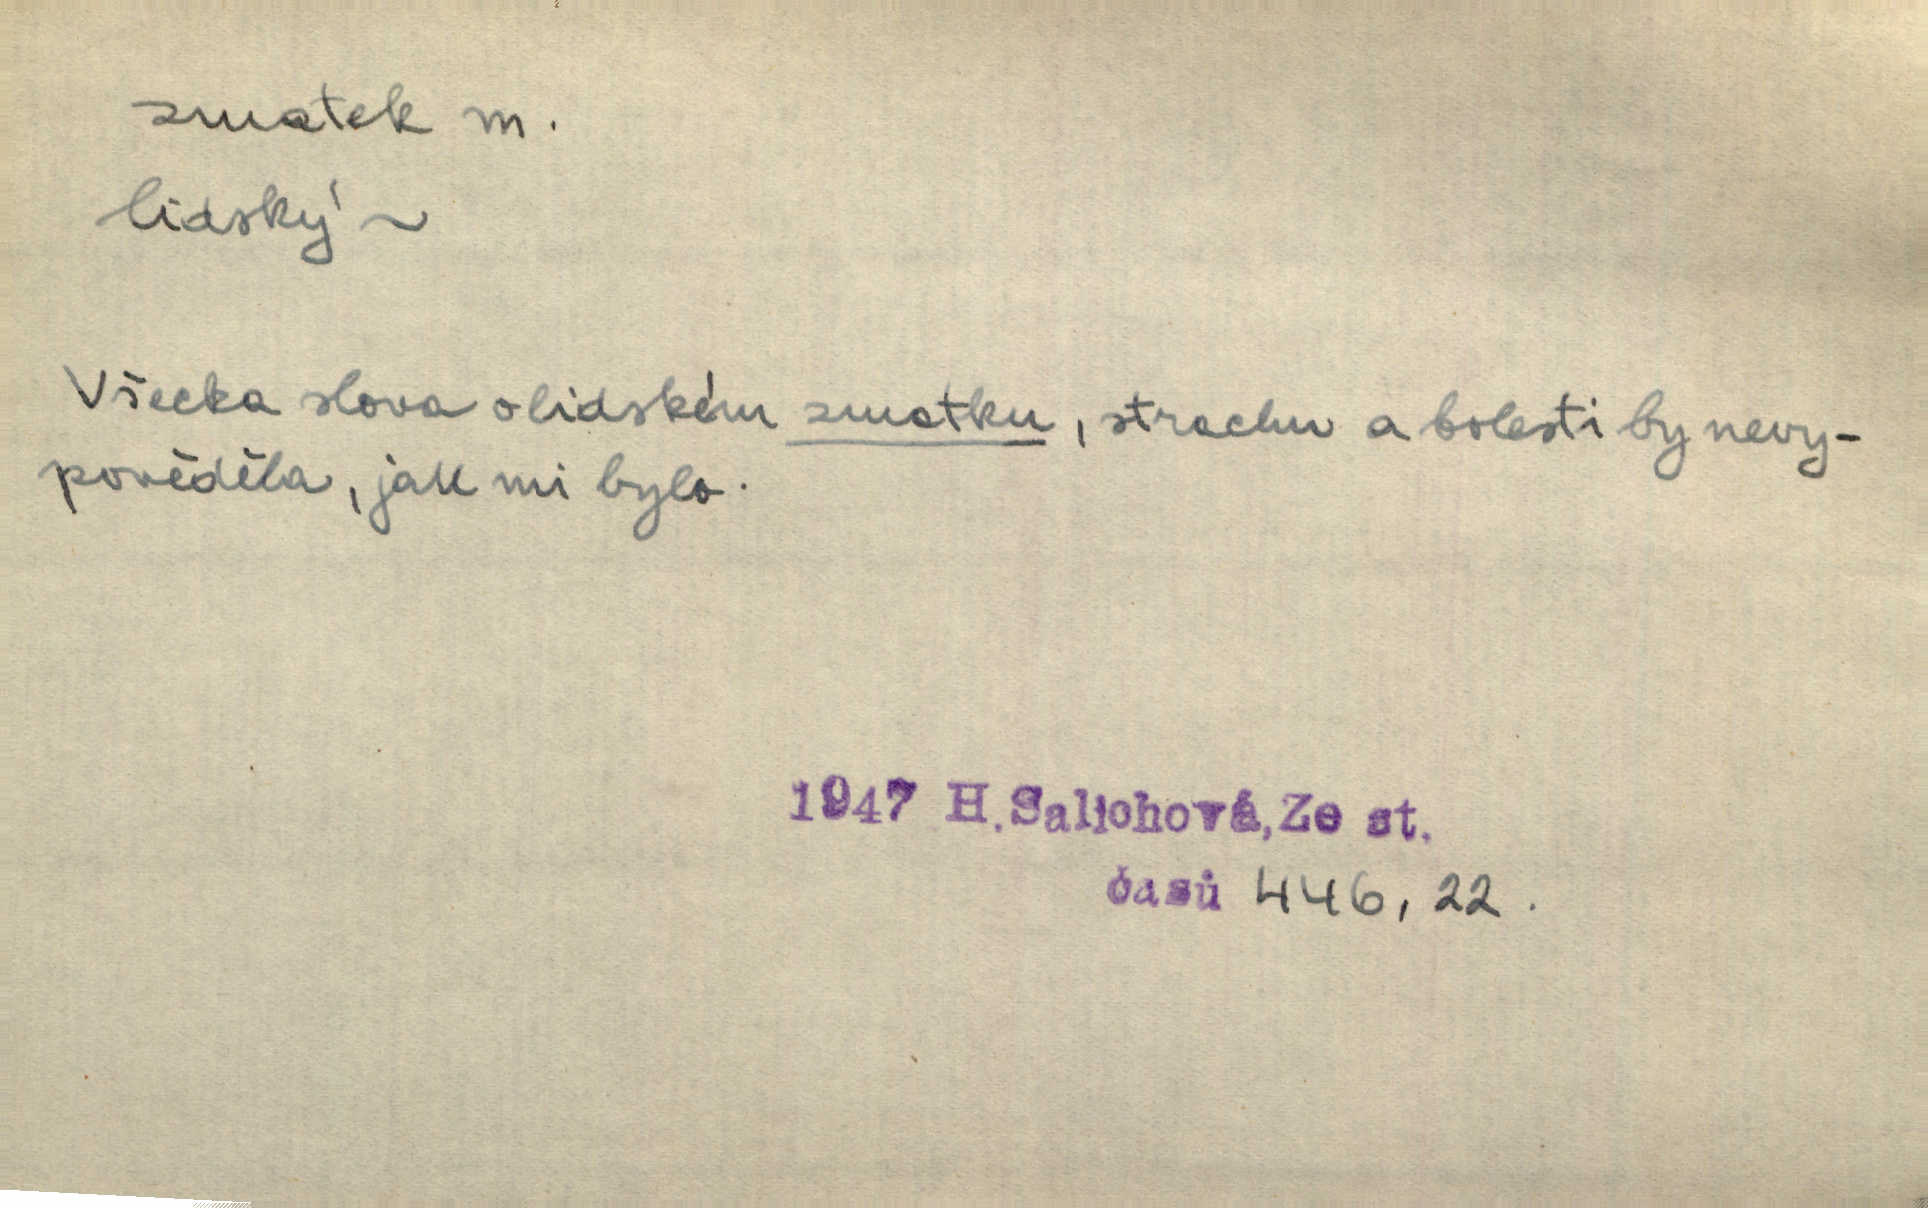 zmatek m.
lidský ~
Všecka slova o lidském zmatku, strachu a bolesti by nevy-
pověděla, jak mi bylo.
1947 H.Salichová,Ze st.
časů 446, 22.